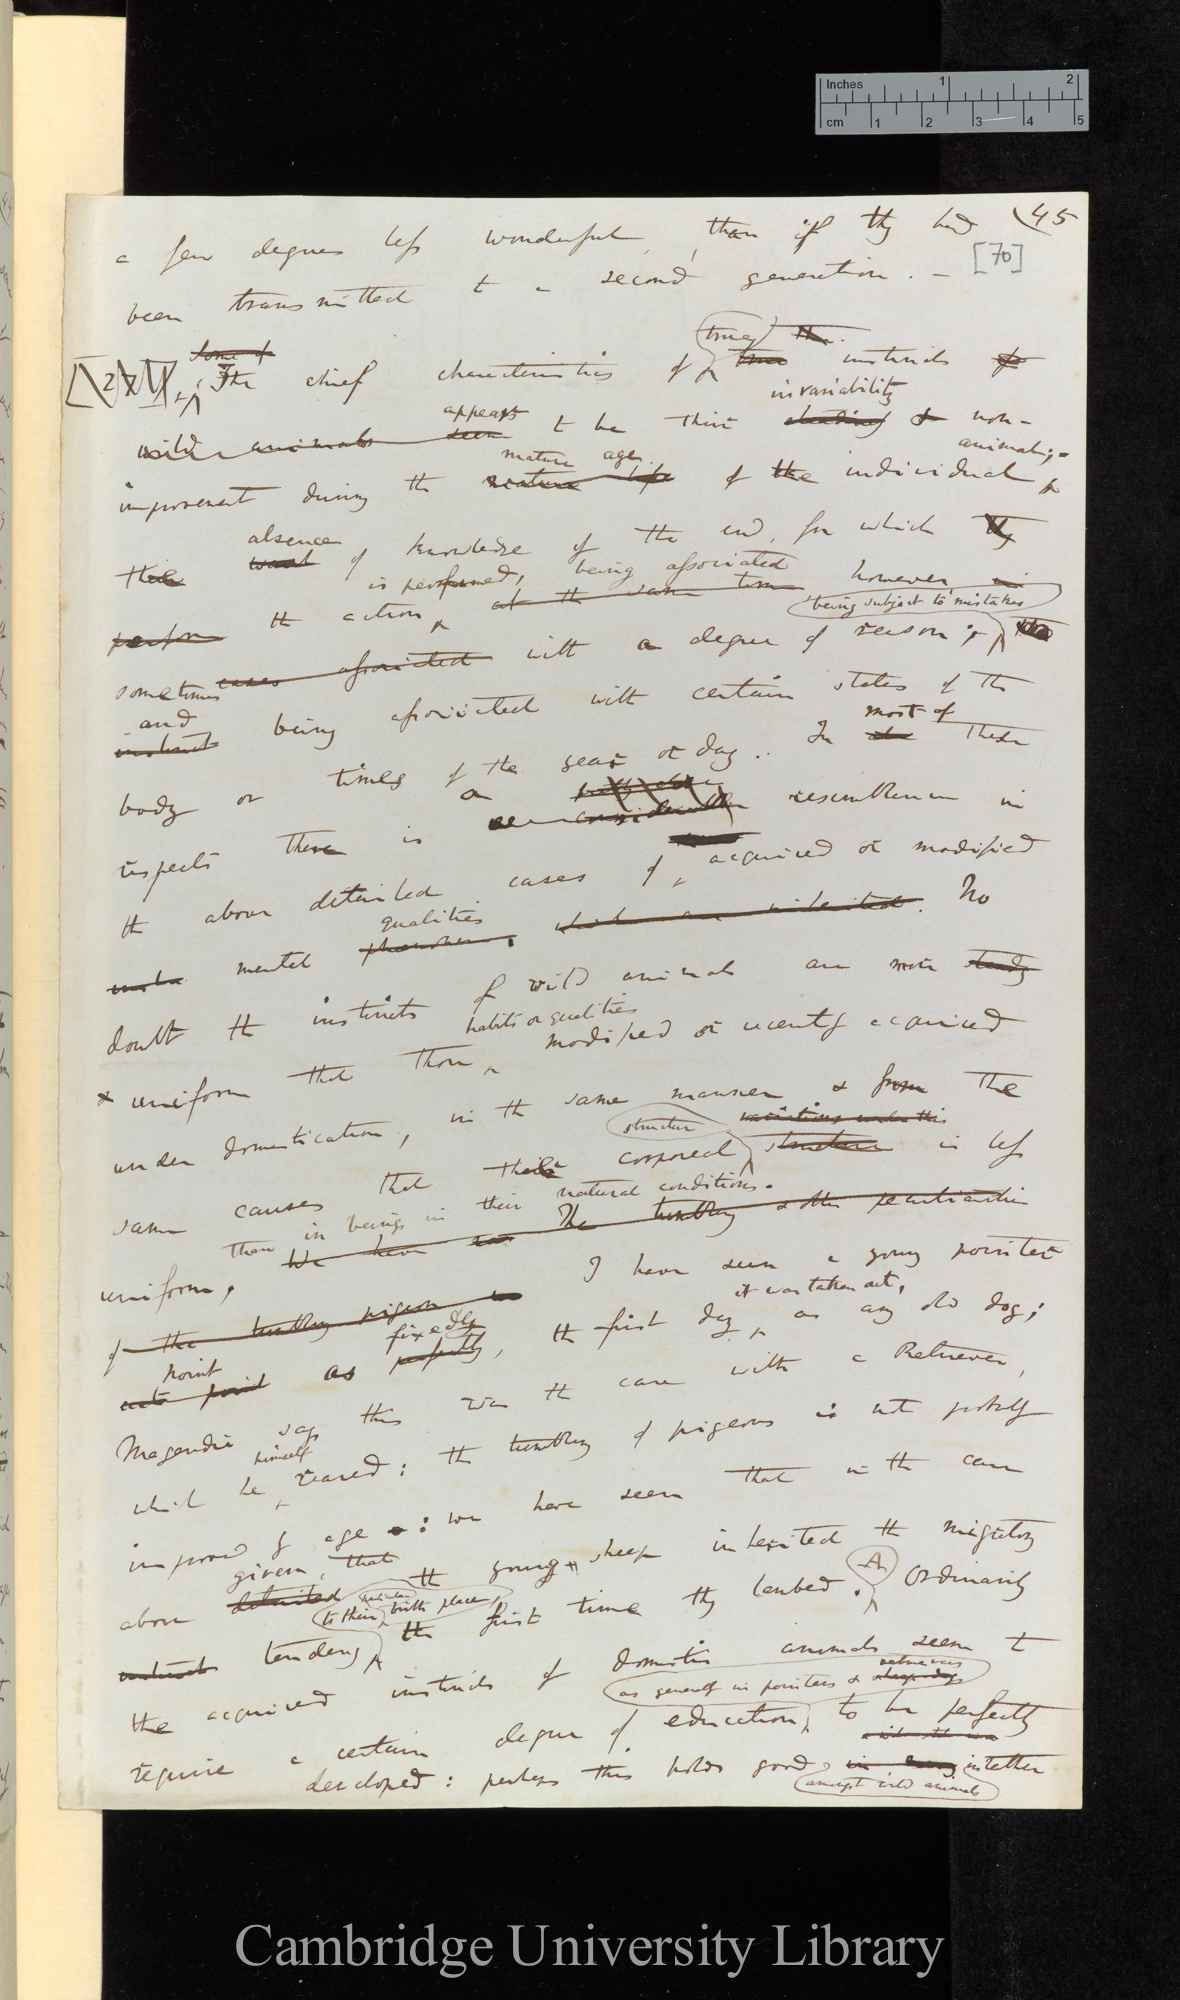 Inches 1 2
cm 1 2 3 4 5
45
a few degrees less wonderful, than if they had
[70]
been transmitted to a second generation. —
some of true the.
The chief characteristics of true instincts of
invariability
wild animals seem appears to be their & non-
mature age animal;
improvement during the mature life of the individual
absence
their want of knowledge of the end, for which they
is performed, being associated however, in
perform the action, at the same time being subject to mistakes
sometimes cases associated with a degree of reason;
and
instinct being associated with certain states of the
body or times of the year or day.. In most of these
respects there is a considerable resemblance in
the above detailed cases of acquired or modified
qualities
under mental phenomena, which are inherited. No
doubt the instincts of wild animals are more steady
habits or qualities
& uniform that those modified or recently acquired
under domestication, in the same manner & from the
structure variations under this
same causes that their corporeal structure is less
than in beings in their natural conditions.
uniform, We have The tumbling & other peculiarities
of the tumbling pigeon I have seen a young pointer
point fixedly it was taken out,
acts point as perfectly, the first day as any old dog;
Magendie says this was the case with a Retriever,
himself
which he reared: the tumbling of pigeons is not probably
improved by age: we have seen that in the case
given, that
above detailed the young sheep inherited the migratory
to their particular birth place A
instinct tendency the first time they lambed. Ordinarily
the acquired instincts of domestic animals seem to
as generally in pointers & retrievers
require a certain degree of education to be perfectly
developed: perhaps this holds good in whether
amongst wild animals
Cambridge University Library